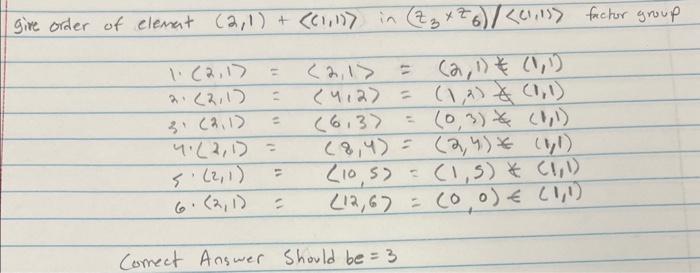 Give order of elemnt (2,1) + <(1,1)> in (Z₃ × Z₆)/<(1,1)> factor group
1·(2,1) = (2,1) = (2,1) ∉ (1,1)
2·(2,1) = (4,2) = (1,2) ∉ (1,1)
3·(2,1) = (6,3) = (0,3) ∉ (1,1)
4·(2,1) = (8,4) = (2,4) ∉ (1,1)
5·(2,1) = (10,5) = (1,5) ∉ (1,1)
6·(2,1) = (12,6) = (0,0) ∈ (1,1)
Correct Answer Should be = 3